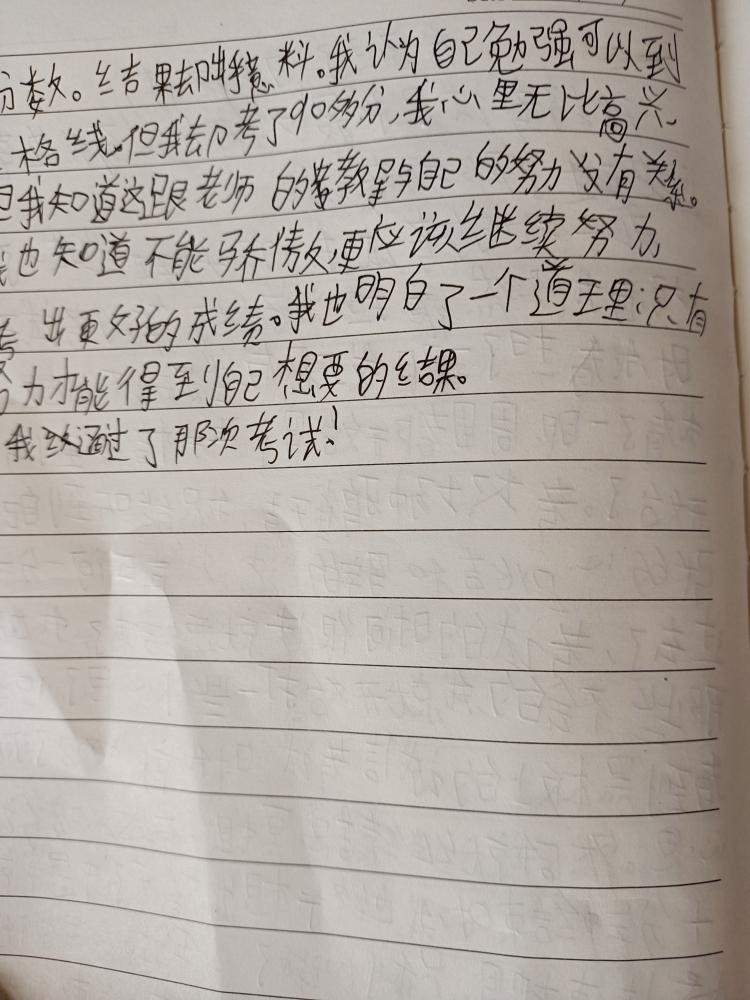 数。结果却出乎意料。我认为自己勉强可以到
格线。但我却考了90多分,我心里无比高兴,
我知道这跟老师的教与自己的努力没有关系。
也知道不能骄傲,更应该继续努力,
出更好的成绩。我也明白了一个道理:只有
力才能得到自己想要的结果。
我终通过了那次考试!